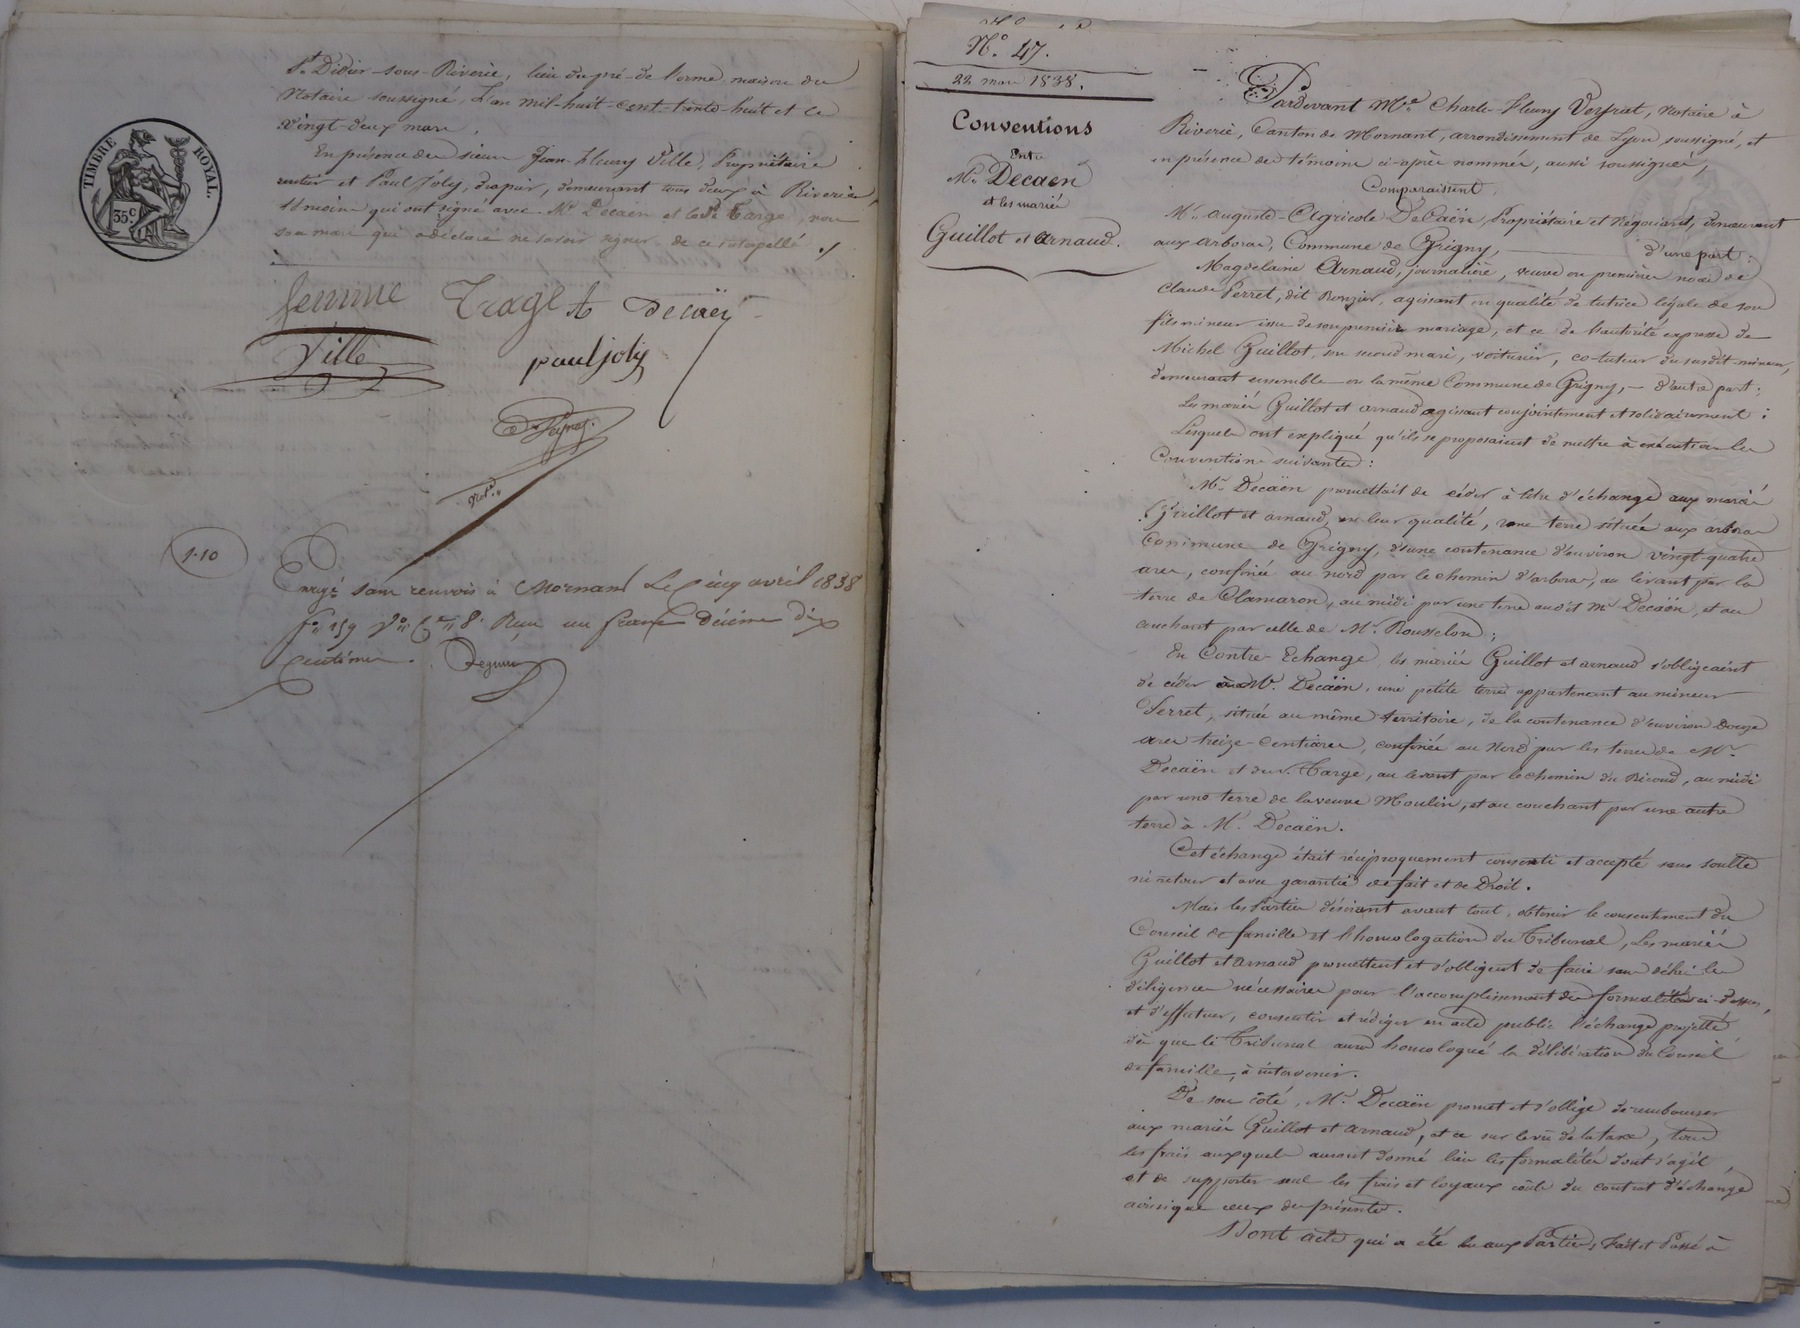 St Didier-sous-Riverie, lieu du pré-de l'orme, maison du
Notaire soussigné, L'an mil-huit-cent-trente-huit et le
vingt-deux mars.
En présence des sieurs Jean-Fleury Ville, Propriétaire
rentier et Paul Joly, drapier, demeurant tous deux à Riverie,
témoins qui ont signé avec Mr Decaën et la de Targe, non
son mari qui a déclaré ne savoir signer de ce interpellé ./
TIMBRE ROYAL.
35c
femme Trage A Decaën
Ville
paul joly
Not.
1-10
Enregé sans renvois à Mornant Le cinq avril 1838
fo 159 Vo Ce 8. Reçu un franc décime dix
centimes.
No. 47.
22 mars 1838.
Conventions
Entre
Mr. Decaen
et les mariés
Guillot et Arnaud.
Pardevant Me. Charles-Fleury Veyrat, Notaire à
Riverie, Canton de Mornant, arrondissement de Lyon soussigné, et
en présence des témoins ci-après nommés, aussi soussignés,
Comparaissent,
Mr. Auguste-Agricole Decaën, Propriétaire et Négociant, demeurant
aux arboras, Commune de Grigny, d'une part:
Magdelaine Arnaud, journalière, veuve en premières noces de
Claude Perret, dit Ronzier, agissant en qualité de tutrice légale de son
fils mineur issu de son premier mariage, et ce de l'autorité expresse de
Michel Guillot, son second mari, voiturier, co-tuteur du susdit mineur,
demeurant ensemble en la même Commune de Grigny, - d'autre part:
Les mariés Guillot et arnaud agissant conjointement et solidairement:
Lesquels ont expliqué qu'ils se proposaient de mettre à exécution les
Conventions suivantes:
Mr. Decaën promettait de céder à titre d'échange aux mariés
Guillot et arnaud, en leur qualité, une terre située aux arboras
Commune de Grigny, d'une contenance d'environ vingt-quatre
ares, confinée au nord par le chemin d'arboras, au levant par la
terre de Clamaron, au midi par une terre audit Mr Decaën, et au
couchant par celle de Mr. Rousselon;
En Contre-Echange, les mariés Guillot et arnaud s'obligeaient
de céder à Mr. Decaën, une petite terre appartenant au mineur
Perret, située au même territoire, de la contenance d'environ Douze
ares treize-Centiares, confinée au Nord par les terres de Mr.
Decaën et du sr. Targe, au levant par le chemin du Recoud, au midi
par une terre de la veuve Moulin, et au couchant par une autre
terre à Mr. Decaën.
Cet échange était réciproquement consenti et accepté sans soulte
ni retour et avec garantie de fait et de Droit.
Mais les Parties désirant avant tout, obtenir le consentement du
Conseil de famille et l'homologation du Tribunal, Les mariés
Guillot et Arnaud promettent et s'obligent de faire sans délai les
diligences nécessaires pour l'accomplissement des formalités ci-dessus,
et d'effectuer, consentir et rédiger en acte public l'échange projetté
dès que le Tribunal aura homologué la délibération du Conseil
de famille, à intervenir.
De son côté, Mr. Decaën promet et s'oblige de rembourser
aux mariés Guillot et Arnaud, et ce sur le vû de la taxe, tous
les frais auxquels auront donné lieu les formalités dont s'agit,
et de supporter seul les frais et loyaux coûts du contrat d'échange
ainsi que ceux des présentes.
Dont acte qui a été lu aux Parties, Fait et Passé à